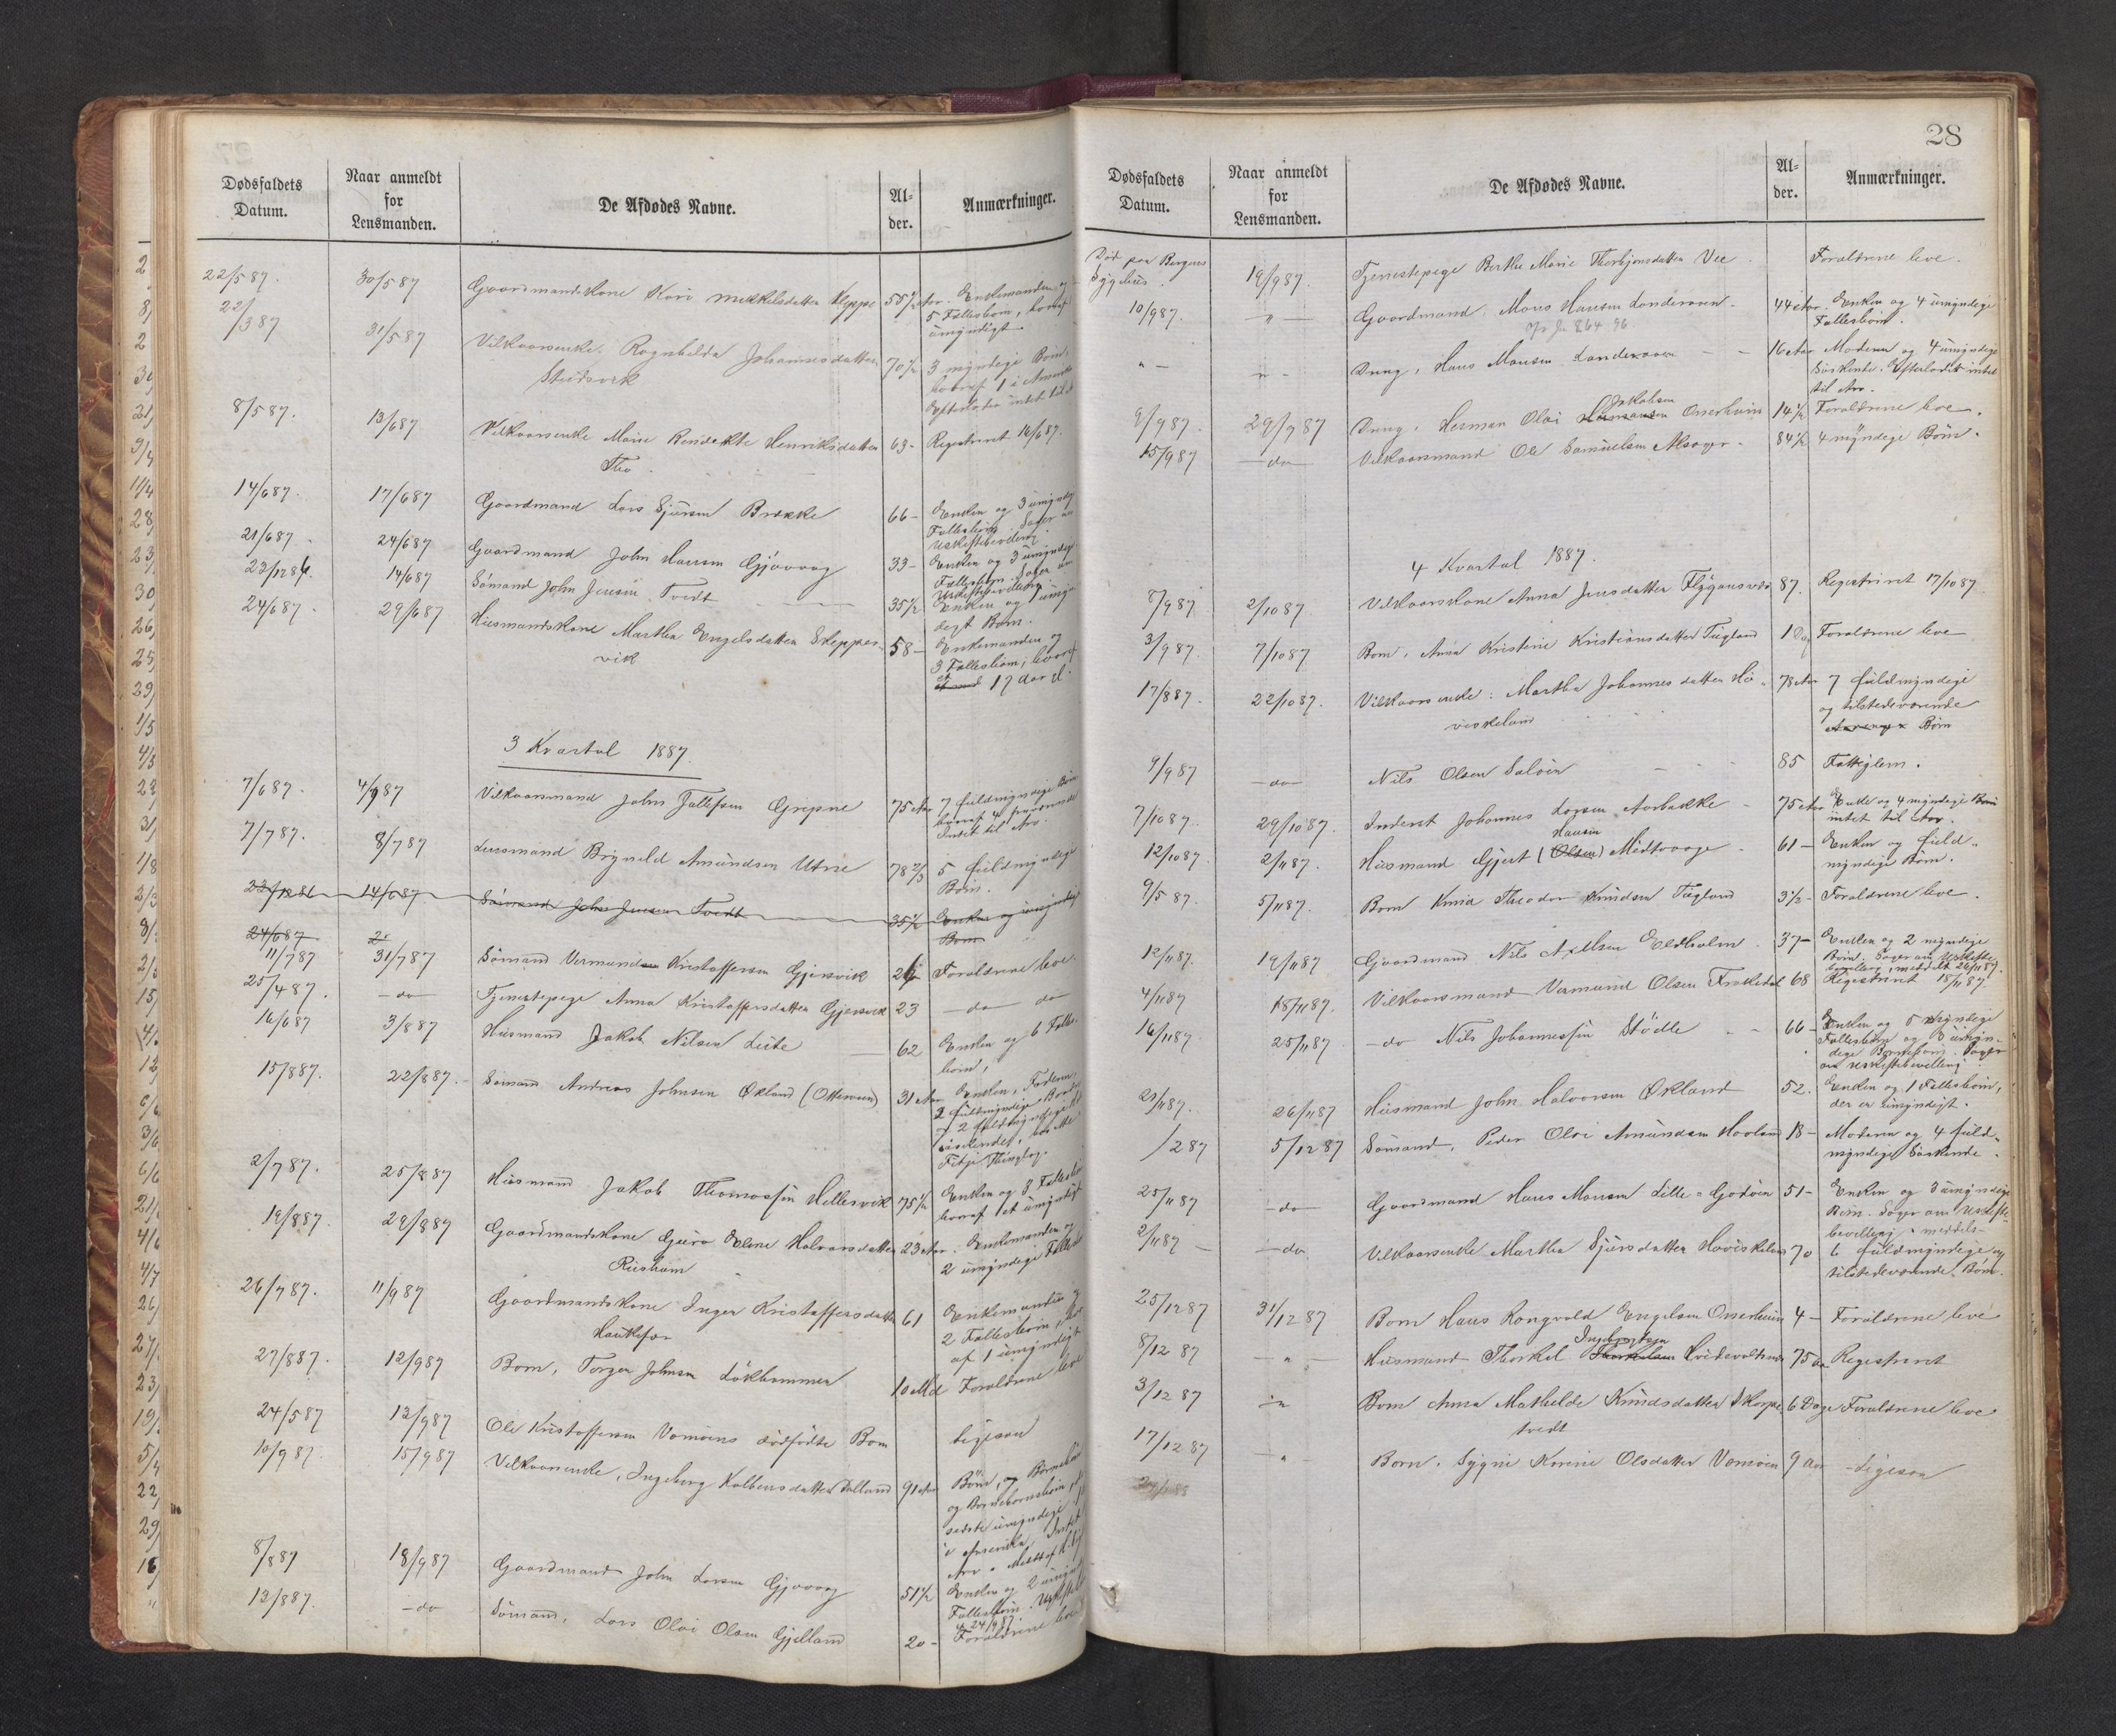 Dødsfaldets Datum.
Naar anmeldt for Lensmanden.
De Afdødes Navne.
Al-der.
Anmærkninger.
22/5 87. 30/5 87 Gaardmandskone Kari Mikkelsdatter Kleppe 55 1/2 Aar. Enkemanden og
5 Fællesbørn, hvoraf
umyndigt
22/3 87 31/5 87 Vilkaarsenke. Ragnhilda Johannesdatter 70 1/2 3 myndige Børn,
Stedsvik hvoraf 1 i Amerika
Efterlader intet til
8/5 87. 13/6 87 Vilkaarsenke Marie Hendrikte Henriksdatter 63- Registreret 16/6 87.
Tho
14/6 87. 17/6 87 Gaardmand Lars Sjursen Brække 66- Enken og 3 umyndige
Fællesbørn. Søger om
Uskiftebevilling
21/6 87 24/6 87 Gaardmand John Hansen Gjøvaag 33- Enken og 3 umyndige
Fællesbørn. Søger om
Uskiftebevilling
23/12 86. 14/6 87 Sømand John Jensen Tvedt 35 1/2 Enken og 1 umyn-
digt Barn.
24/6 87. 29/6 87 Husmandskone Martha Engelsdatter Skeppes- 58- Enkemanden og
vik 3 Fællesbørn, hvoraf
et 17 Aar gl.
3 Kvartal 1887.
7/6 87. 4/9 87 Vilkaarsmand John Tollefsen Gripne 75 Aar 7 fuldmyndige Børn
hvoraf 4 fraværende
Intet til Arv.
7/7 87. 8/7 87 Lensmand Brynild Amundsen Utne 78 2/3 5 fuldmyndige
Børn.
23/12 86 14/6 87 Sømand John Jensen Tvedt 35 1/2 Enken og umyndigt
Barn
24/6 87 2
11/7 87 31/7 87 Sømand Vermund Kristoffersen Gjersvik 26 Forældrene leve.
25/4 87. -do- Tjenestepige Anna Kristoffersdatter Gjersvik 23 -do- do
16/6 87 3/8 87 Husmand Jakob Nilsen Leite 62 Enken og 6 Fælles-
børn,
15/8 87. 22/8 87. Sømand Andreas Johnsen Økland (Ottersen) 31 Aar Enken, Faderen,
2 fuldmyndige Brødre
og 2 fuldmyndige
Fitje Thinglag.
2/7 87. 25/8 87 Husmand Jakob Thomassen Hellesvik 75 1/2 Enken og 3 Fællesbørn
hvoraf et umyndigt
19/8 87. 29/8 87 Gaardmandskone Guro Eline Halvorsdatter 23 Aar. Enkemanden og
Risheim 2 umyndige Fælles
26/7 87. 11/9 87 Gaardmandskone Inger Kristoffersdatter 61 Enkemanden og
Haukefær 2 Fællesbørn, hvor
af 1 umyndigt
27/8 87. 12/9 87 Barn, Torger Johnsen Løkhammer 10 Md Forældrene leve
24/5 87 13/9 87 Ole Kristoffersen Vornæns dødfødte Barn ligesaa
10/9 87. 15/9 87 Vilkaarsenke, Ingeborg Kolbensdatter Dalland 91 Aar Børn, og Børnebørn
og Børnebørnsbørn,
sidste umyndige
i Amerika. Intet
Arv.
8/8 87 18/9 87 Gaardmand John Larsen Gjøvaag 51 1/2 Enken og 2 umynd
Fællesbørn. Uskifte
24/9 87.
13/8 87. -do Sømand, Lars Olai Olsen Gjelland 20- Forældrene leve
28
Dødsfaldets Datum.
Naar anmeldt for Lensmanden.
De Afdødes Navne.
Al-der.
Anmærkninger.
Død paa Bergens
Sygehus. 19/9 87. Tjenestepige Berthe Marie Thorbjørnsdatter Vee Forældrene leve.
10/9 87. -"- Gaardmand. Mons Hansen Landeraaen. 44 Aar. Enken og 4 umyndige
Fællesbørn.
" - " - Dreng, Hans Monsen Landeraaen - - 16 Aar Moderen og 4 umyndige
Søskende. Efterlader intet
til Arv.
Jakobsen
9/9 87. 29/9 87 Dreng. Herman Olai Hermansen Onerheim 14 1/2 Forældrene leve.
15/9 87 -do- Vilkaarsmand Ole Samuelsen Alsager 84 1/2 4 myndige Børn.
4 Kvartal 1887.
8/9 87 2/10 87. Vilkaarskone Anna Jensdatter Flygansvær 87. Registreret 17/10 87
3/9 87. 7/10 87 Barn, Anna Kristine Kristiansdatter Teigland 1 Dag Forældrene leve
17/8 87. 22/10 87. Vilkaarsenke: Martha Johannesdatter Hø- 78 Aar 7 fuldmyndige
viskeland og tilstedeværende
Børn
9/9 87 -do- Nils Olsen Saløen 85 Fattiglem.
7/10 87. 29/10 87. Inderst Johannes Larsen Aarbakke 75 Aar Enke og 4 myndige Børn
intet til Arv.
Hansen
12/10 87. 2/11 87. Husmand Gjert (Olsen) Midtvaage 61- Enken og fuld-
myndige Børn.
9/5 87. 5/11 87. Barn Knud Theodor Knudsen Teigland 3 1/2- Forældrene leve.
12/11 87. 19/11 87 Gaardmand Nils Axelsen Eldholm 37- Enken og 2 myndige
Børn. Søger om Uskifte-
bevilling, meddelt 26/11 87.
4/11 87 18/11 87. Vilkaarsmand Vermund Olsen Frøkedal 68 Registreret 18/11 87.
16/11 87 25/11 87 -do Nils Johannessen Stødle 66- Enken og 5 myndige
Fællesbørn og 3 umyn-
dige Børnebørn. Søger
om Uskiftebevilling.
21/11 87. 26/11 87 Husmand John Halvorsen Økland 52. Enken og 1 Fællesbørn,
der er umyndigt.
/2 87 5/12 87 Sømand, Peder Olai Amundsen Hovland 18- Moderen og 4 fuld-
myndige Søskende.
25/11 87 -do- Gaardmand Hans Monsen Lille-Godøen 51- Enken og 3 umyndige
Børn. Søger om Uskifte-
bevilling. meddelt
2/11 87 - -do Vilkaarsenke Martha Sjursdatter Høviskeland 70 6 fuldmyndige og
tilstedeværende Børn.
25/12 87 31/12 87 Barn Hans Rongvald Engelsen Onerheim 4- Forældrene leve
Ingebrigtsen
8/12 87 - " - Husmand Thorkel Thorkelsen Hvidevoldsnes 75 Aar Registreret
3/12 87 " Barn Anna Mathilde Knudsdatter Skorpe- 6 Dage Forældrene leve.
tvedt
17/12 87 " Barn. Sygni Karine Olsdatter Vornæen 9 Aar -Ligesaa